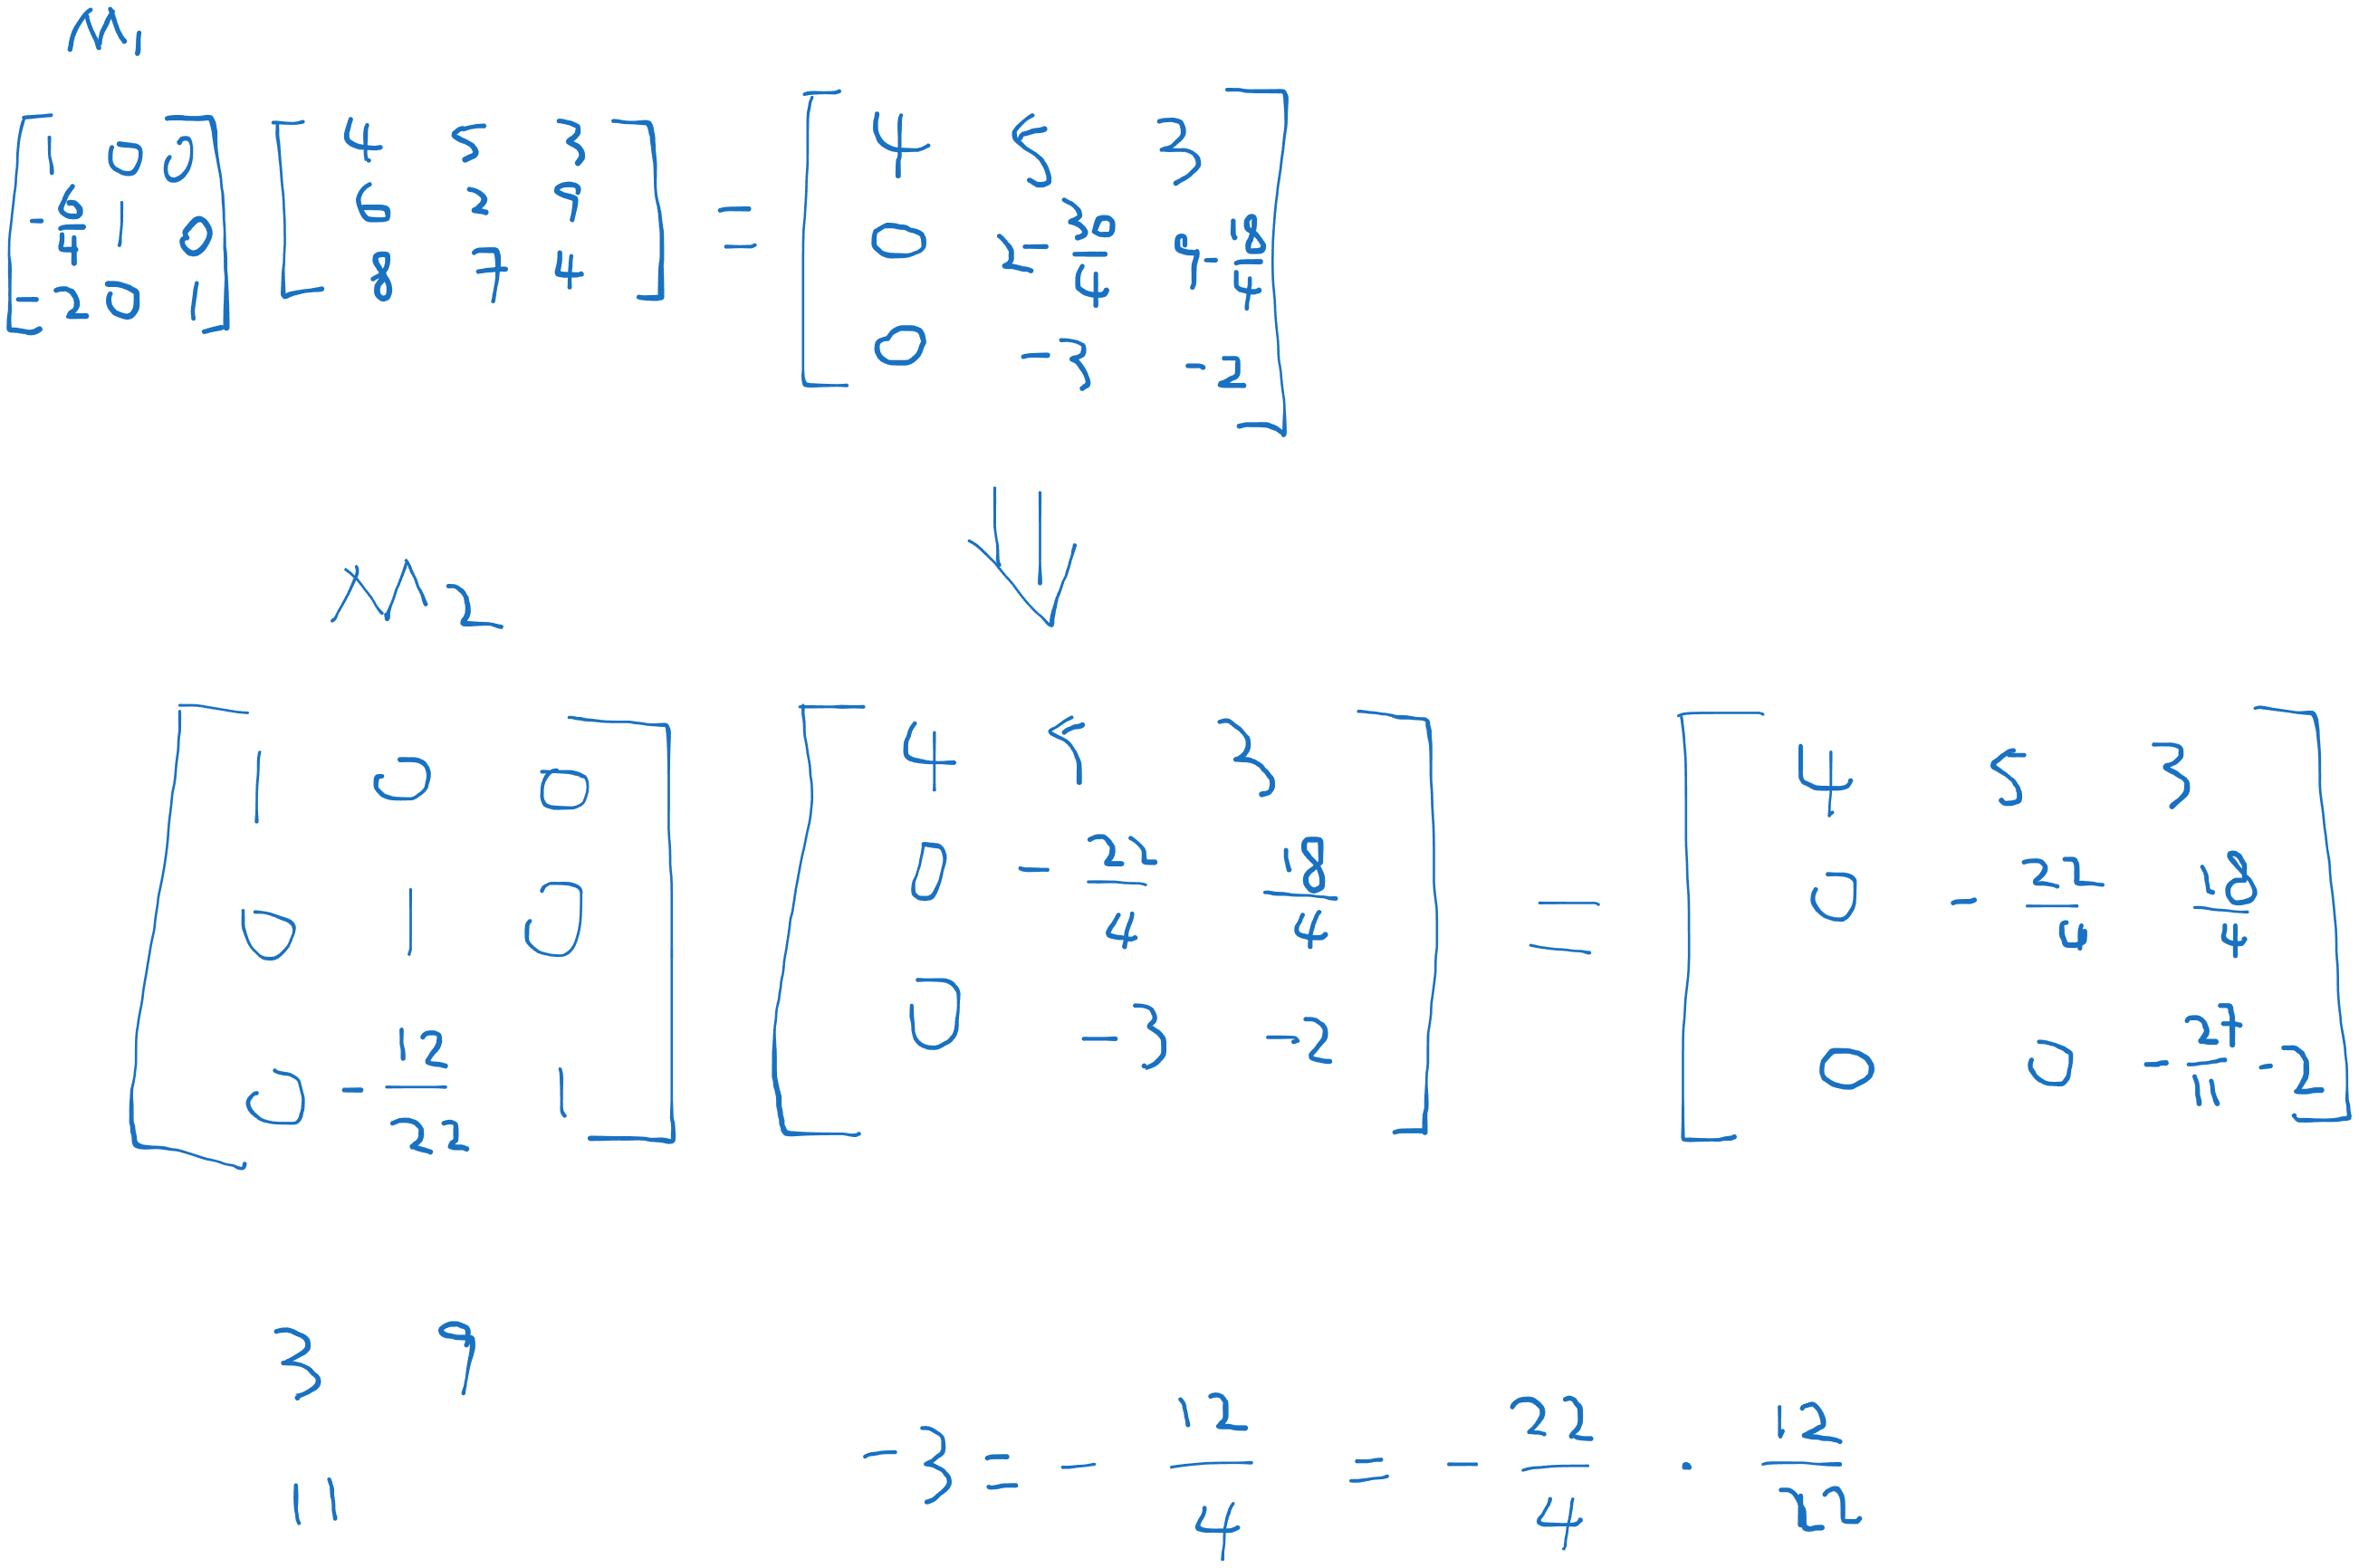 M₁
[1 0 0; -6/4 1 0; -2 0 1] [4 5 3; 6 2 9; 8 7 4] = [4 5 3; 0 2-30/4 9-18/4; 0 -3 -2]
⇓
M₂
[1 0 0; 0 1 0; 0 -12/22 1] [4 5 3; 0 -22/4 18/4; 0 -3 -2] = [4 5 3; 0 -22/4 18/4; 0 0 -27/11-2]
3 9
11
-3 = -12/4 = -22/4 · 12/22